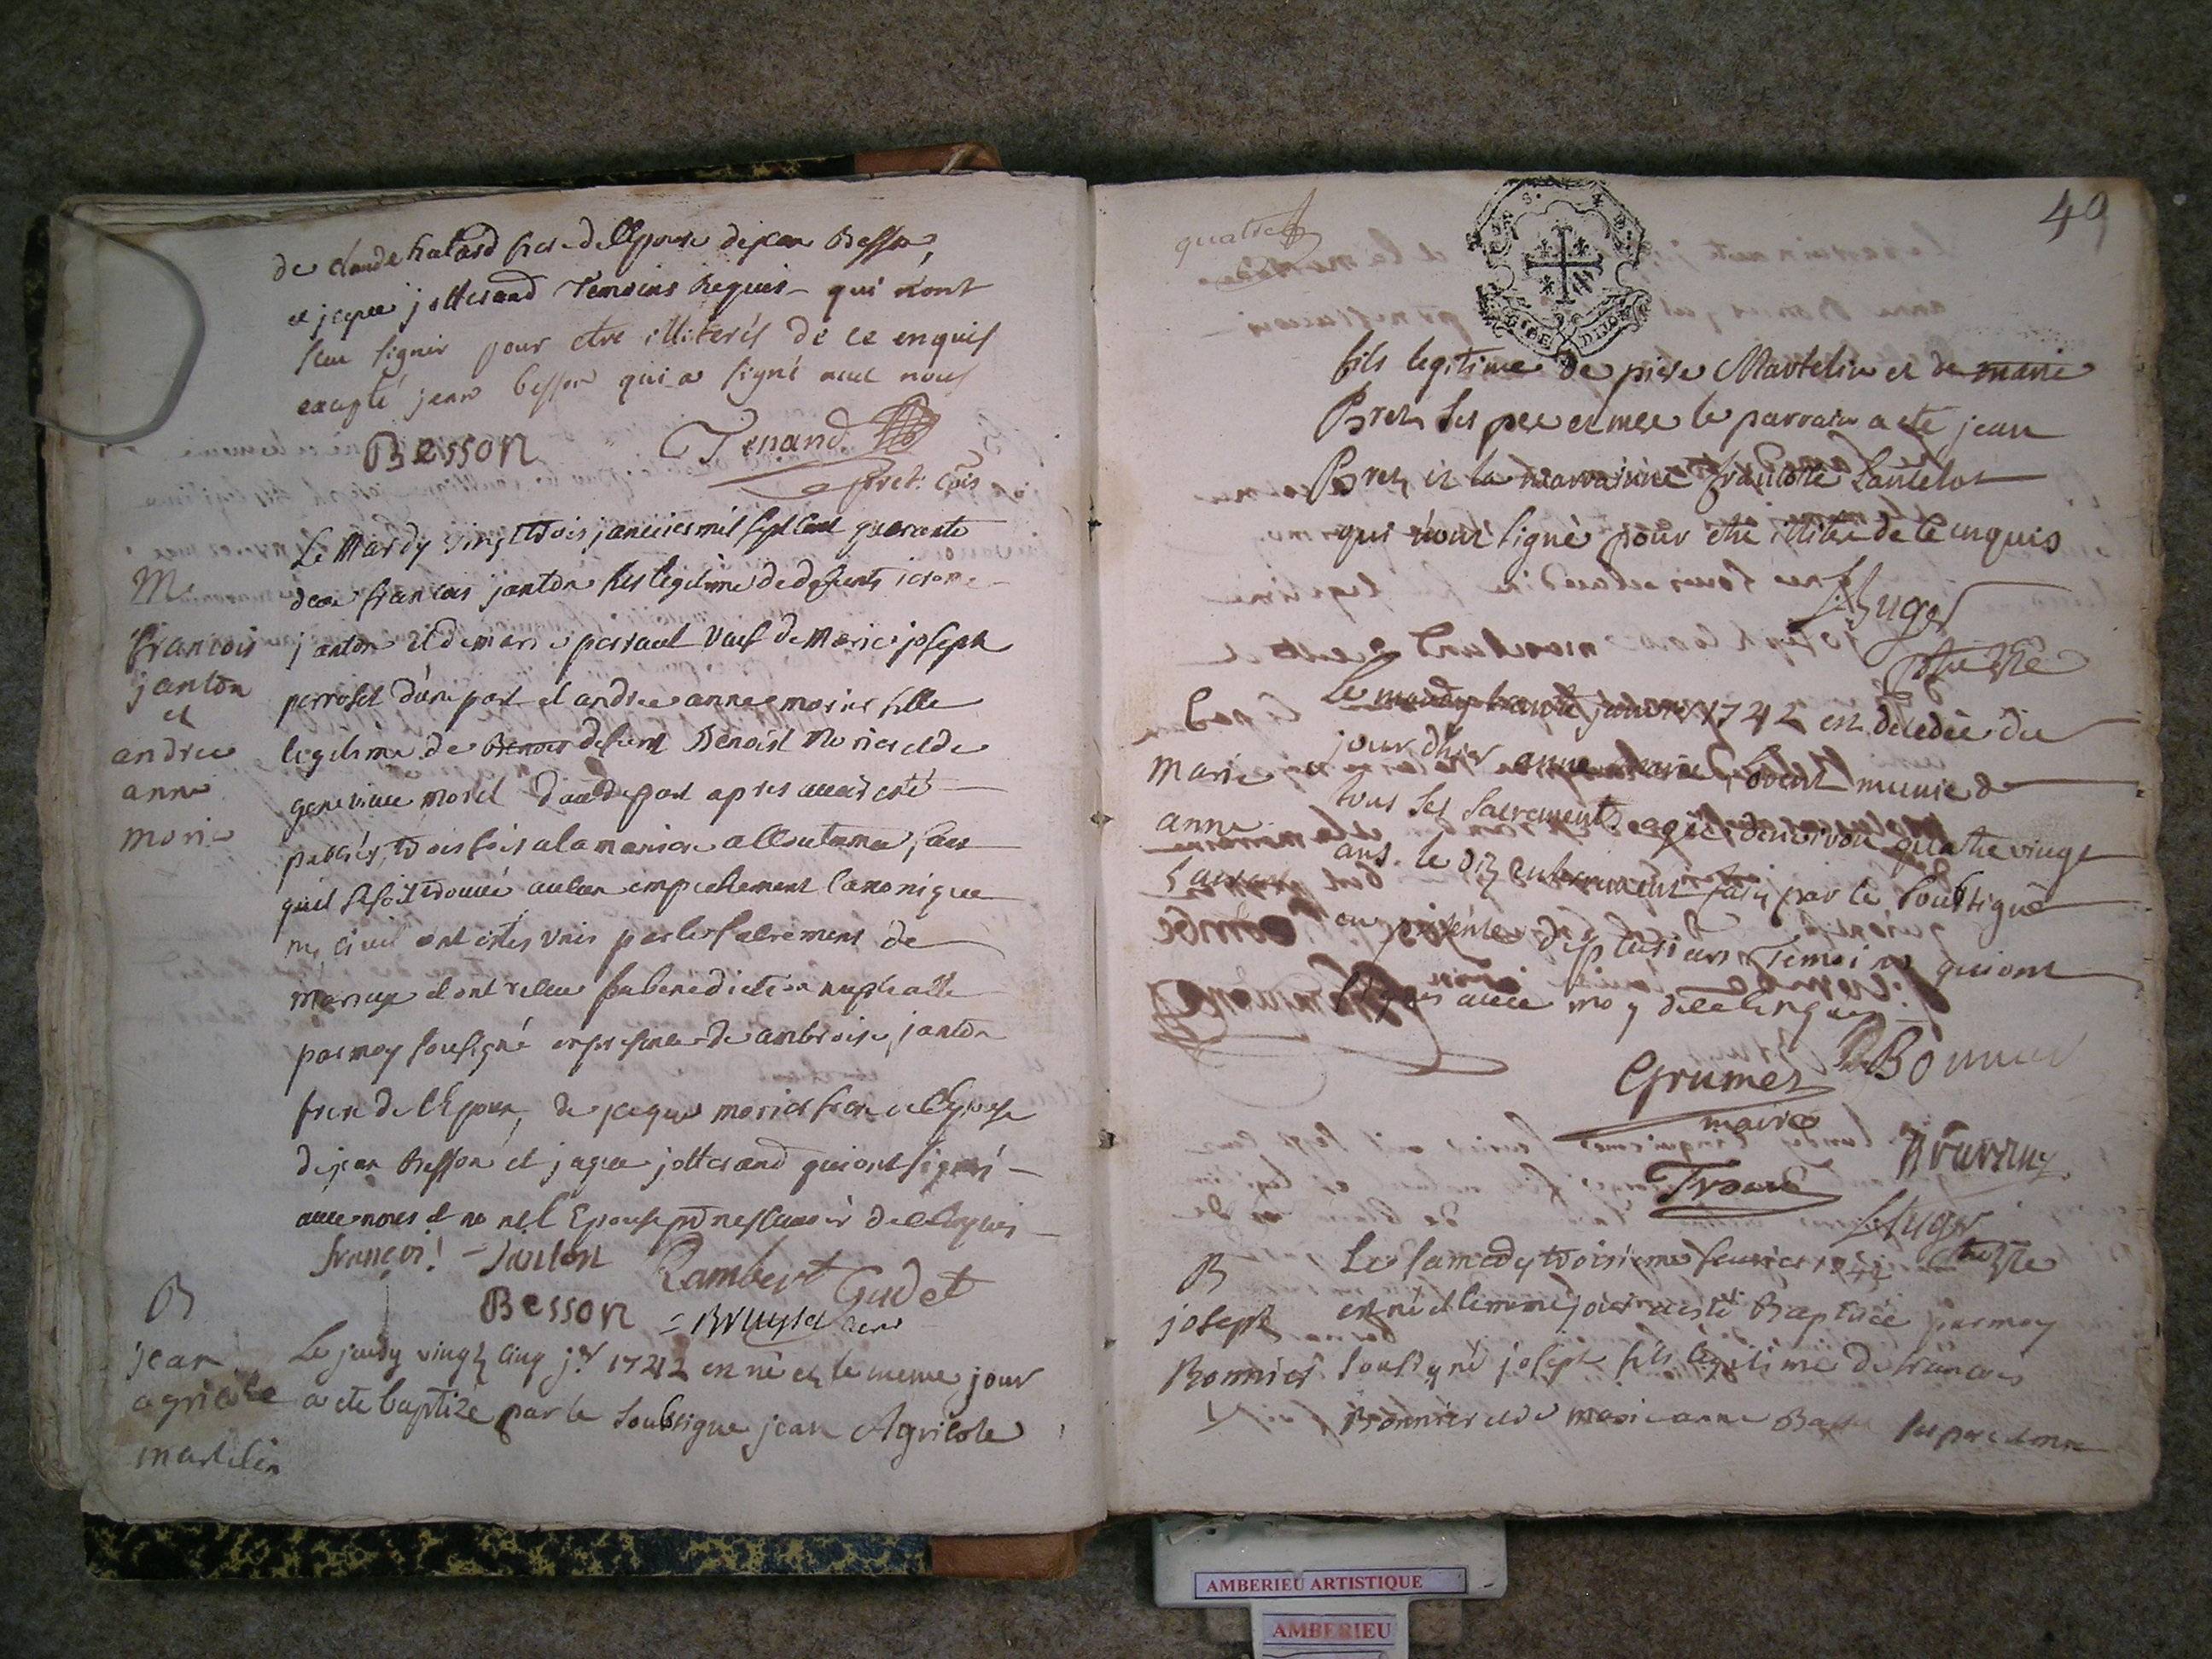 de claude frere de lEpouse de jean Besson,
et jaque jotterand Temoins Requis qui n'ont
sceu signer pour etre illiterés de ce enquis
excepté jean besson qui a signé avec nous
Besson Tenand
pret. cois
Le Mardy vingt trois janvier mil sept cent quarante
deux francois janton fils legitime de defunts
janton et de marie vuef de Marie joseph
perroset d'une part et andree anne morier fille
legitime de benoit defunt Benoist Morier et de
genevieve morel d'autre part apres avoir esté
publiés trois fois a la maniere accoutumée, sans
quil se soit trouvé aucun empechement Canonique
ny civil ont estes unis par le Sacrement de
Mariage et ont receu la benediction nuptialle
par moy sousigné en presence de ambroise janton
frere de lEpoux, de jaque morier frere de lEpouse
de jean Besson et jaque jotterand qui ont signés
avec nous et non lEpouse pour ne scavoir de ce enquis
françois janton Rambert Gudet
Besson
M.
francois
janton
et
andree
anne
morie
B
jean
agricole
martelin
Le jeudy vingt cinq jer 1742 est né et le meme jour
a ete baptizé par le soubsigné jean Agricole
quatre
49
fils legitime de piere Martelin et de marie
Bret ses pere et mere le parrain a ete jean
Bret et la marrainne francoise Lantelot
qui n'ont signé pour etre illitere de ce enquis
Huger
ptre Vre
Le mardy trante janvier 1742 est decedée du
jour dhier anne marie, avent munie de
tous ses sacrements agée denviron quatre vingt
ans le dit enterrement fait par le soubsigné
en presence de plusieurs Temoins qui ont
signes avec moy de ce enquis
marie
anne
Grumet Bonnier
maire
Trouvé
Huger
ptre Vre
B
joseph
Bonnier
Le samedy troisieme fevrier 1742
est né et le meme jour a esté Baptisé par moy
sousigné joseph fils legitime de francois
Bonnier et de marie anne ses pere et mere
AMBERIEU ARTISTIQUE
AMBERIEU